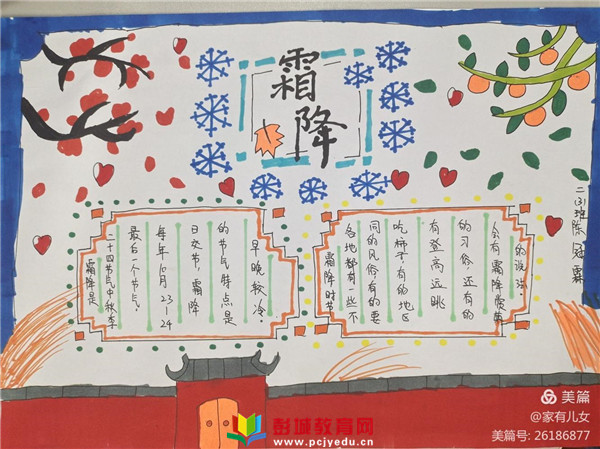 霜降
霜降是二
十四节气中秋季
最后一个节气.
每年10月23-24
日交节,霜降
的节气特点是
早晚较冷.
霜降时节
各地都有一些不
同的风俗有的要
吃柿子有的地区
有登高远眺
的习俗,还有的
会有霜降赏菊
的说法.
二(3)班陈冠霖
彭城教育网
www.pcjyedu.cn
美篇
@家有儿女
美篇号: 26186877